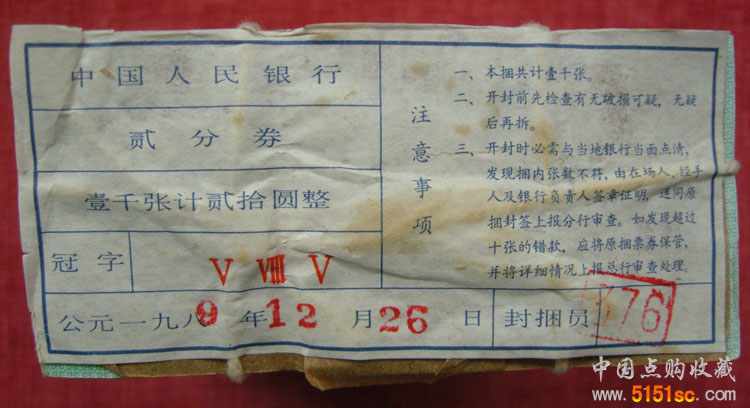 中国人民银行
贰分券
壹千张计贰拾圆整
冠字 V VIII V
公元一九八9年12月26日 封捆员 376
注意事项
一、本捆共计壹千张。
二、开封前先检查有无破损可疑，无疑
后再拆。
三、开封时必需与当地银行当面点清，
发现捆内张数不符，由在场人，经手
人及银行负责人签章证明，连同原
捆封签上报分行审查。如发现超过
十张的错款，应将原捆票券保管，
并将详细情况上报总行审查处理。
中国点购收藏
www.5151sc.com